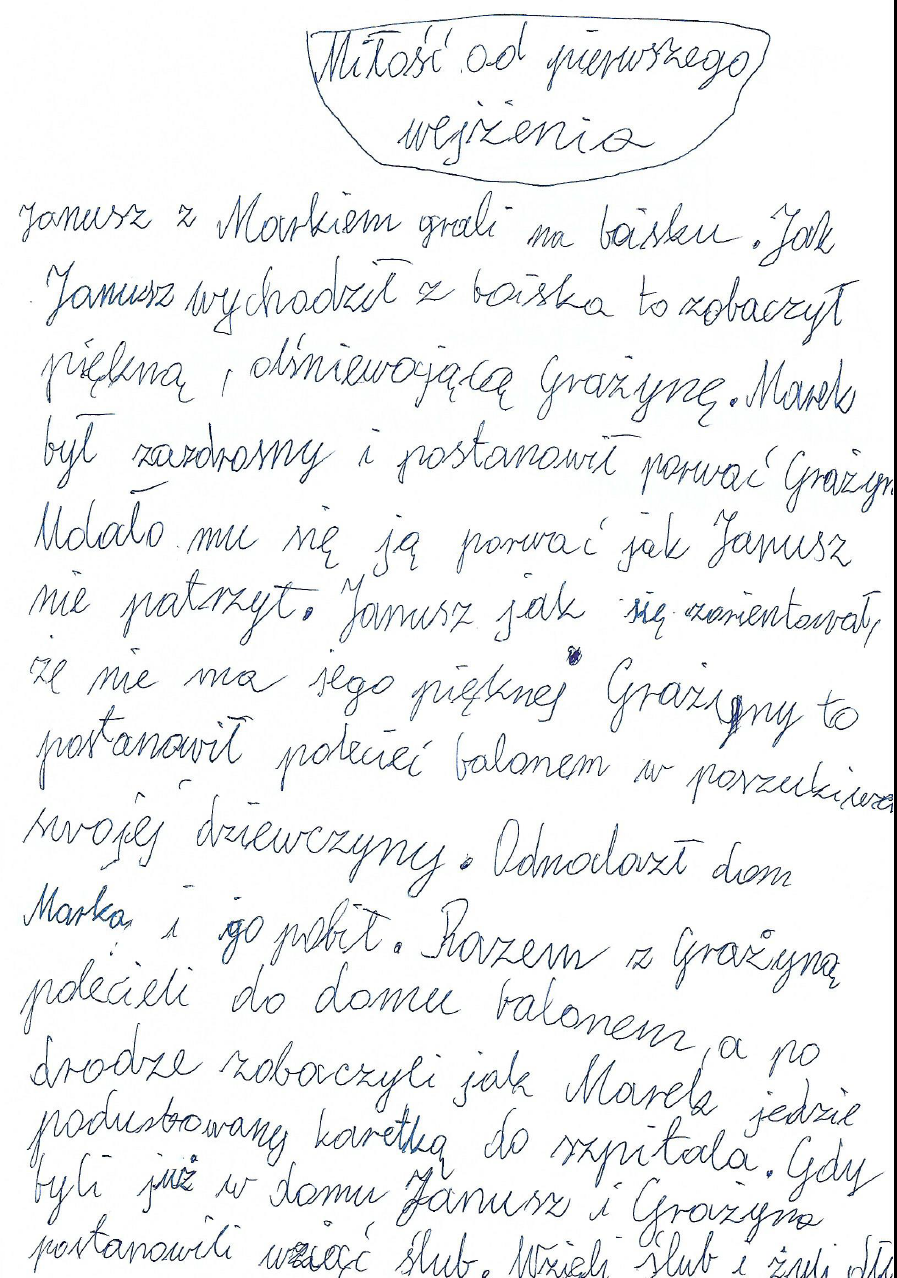 Miłość od pierwszego
wejżenia
Janusz z Markiem grali na boisku. Jak
Janusz wychodził z boiska to zobaczył
piękną, olśniewającą Grażynę. Marek
był zazdrosny i postanowił porwać
Udało mu się ją porwać jak Janusz
nie patrzył. Janusz jak się zorientował,
że nie ma jego pięknej Grażyny to
postanowił polecieć balonem w
swojej dziewczyny. Odnalazł dom
Marka i go pobił. Razem z Grażyną
polecieli do domu balonem, a po
drodze zobaczyli jak Marek jedzie
karetką do szpitala. Gdy
byli już w domu Janusz i Grażyna
postanowili wziąć ślub. Wzięli ślub i żyli